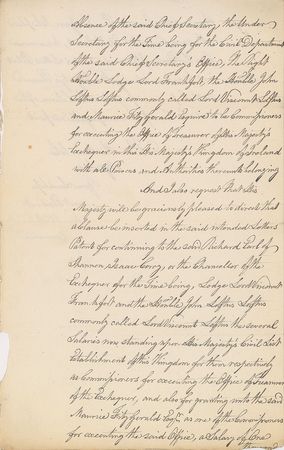 Absence of the said Chief Secretary, the Under
Secretary for the Time being for the Civil Department
of the said Chief Secretary's Office, the Right
Honble Lodge Lord Frankfort, the Honble John
Loftus Loftus commonly called Lord Viscount Loftus
and Maurice FitzGerald Esquire to be Commissioners
for executing the Office of Treasurer of His Majesty's
Exchequer in this His Majesty's Kingdom of Ireland
with all Powers and Authorities thereunto belonging
And I also request that His
Majesty will be graciously pleased to direct that
a Clause be inserted in the said intended Letters
Patent for continuing to the said Richard Earl of
Shannon, Isaac Corry, or the Chancellor of the
Exchequer for the Time being, Lodge Lord Viscount
Frankfort and the Honble John Loftus Loftus
commonly called Lord Viscount Loftus the several
Salaries now standing upon His Majesty's Civil List
Establishment of this Kingdom for them respectively
as Commissioners for executing the Office of Treasurer
of the Exchequer, and also for granting unto the said
Maurice FitzGerald Esqr. as one of the Commissioners
for executing the said Office, a Salary of One
thousand